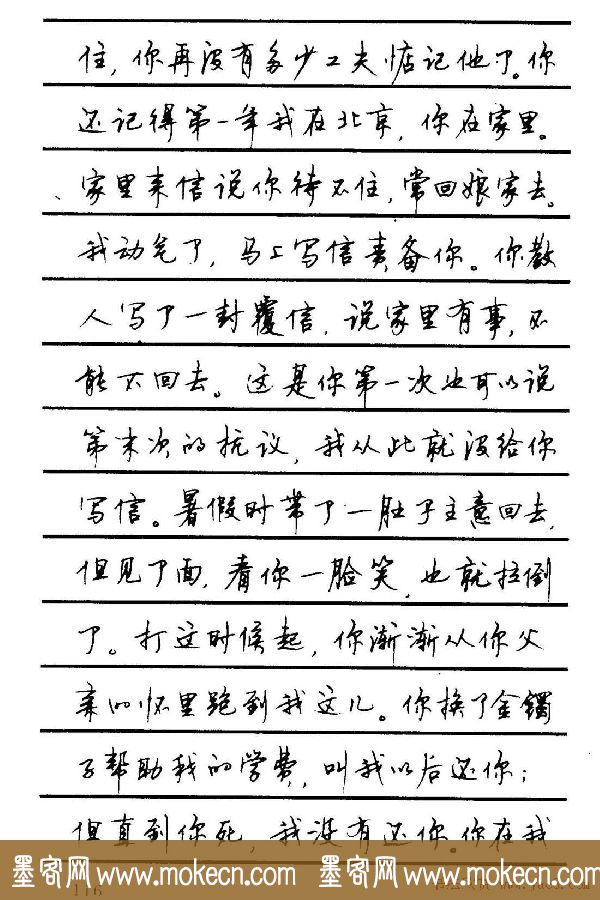 住，你再没有多少工夫惦记他了。你
还记得第一年我在北京，你在家里。
家里来信说你待不住，常回娘家去。
我动气了，马上写信责备你。你教
人写了一封覆信，说家里有事，不
能不回去。这是你第一次也可以说
第末次的抗议，我从此就没给你
写信。暑假时带了一肚子主意回去，
但见了面，看你一脸笑，也就拉倒
了。打这时候起，你渐渐从你父
亲的怀里跑到我这儿。你换了金镯
子帮助我的学费，叫我以后还你；
但直到你死，我没有还你。你在我
墨客网 www.mokecn.com 墨客网 www.mokecn.com
116